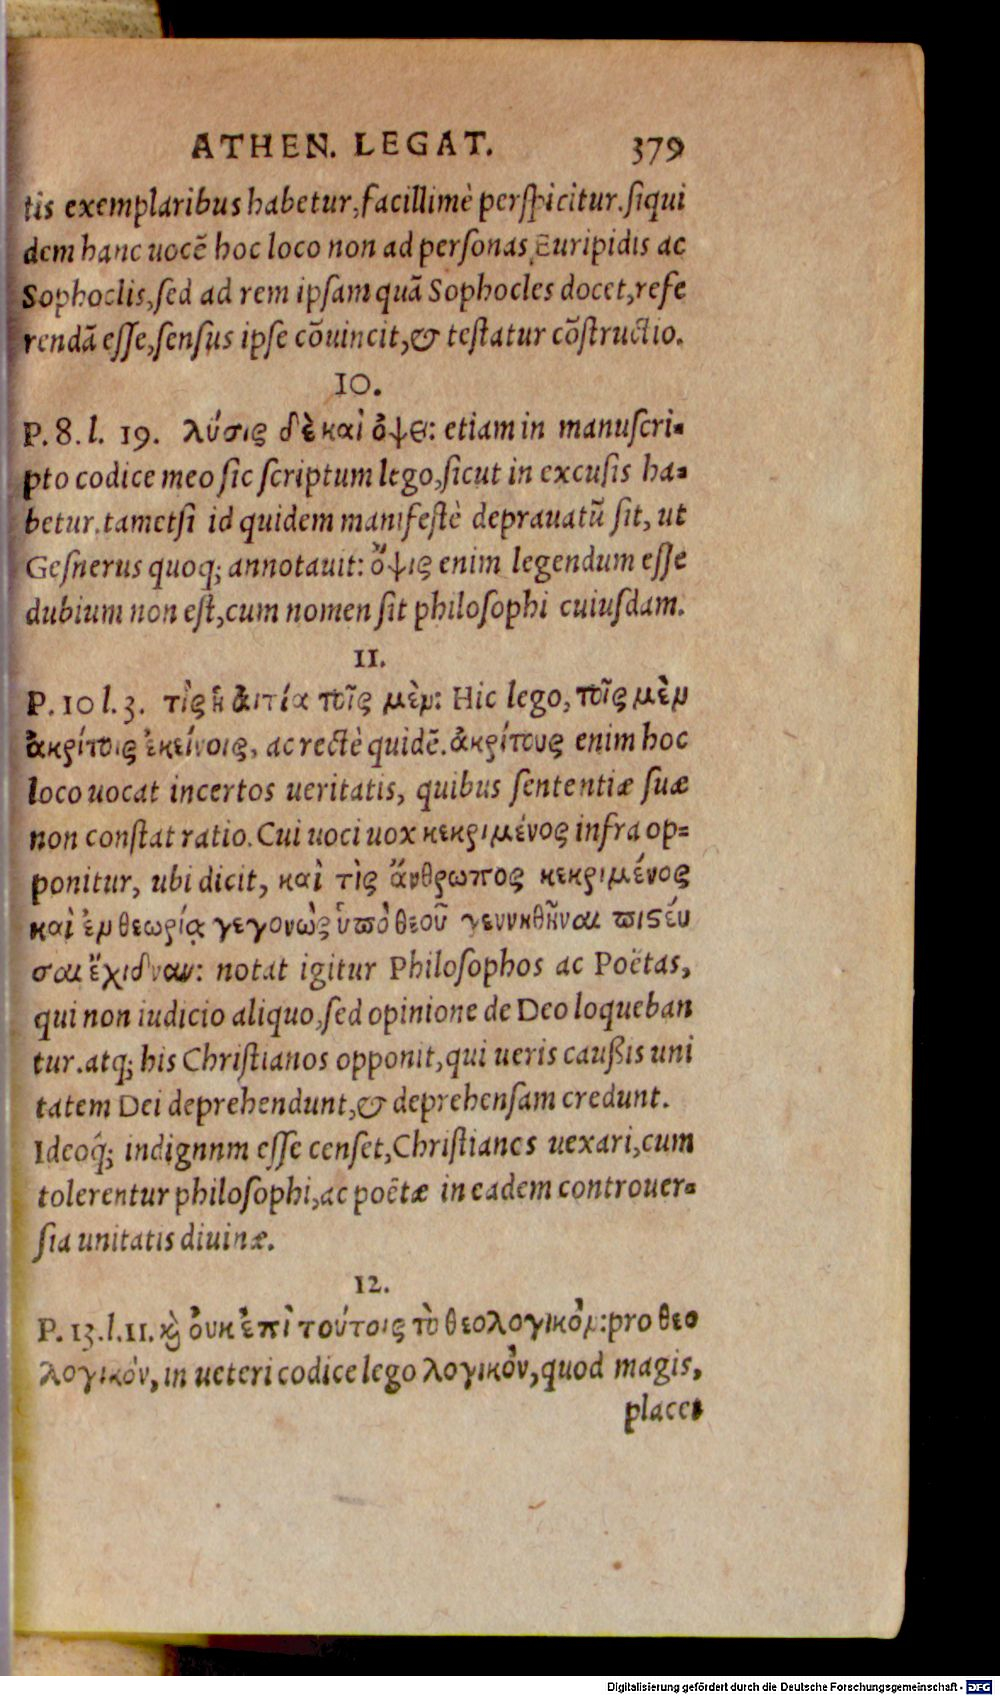 ATHEN. LEGAT. 379
tis exemplaribus habetur, facillimè perſpicitur. ſiqui
dem hanc uocē hoc loco non ad perſonas Euripidis ac
Sophoclis, ſed ad rem ipſam quā Sophocles docet, refe
rendā eſſe, ſenſus ipſe cōuincit, & teſtatur cōſtructio.
10.
P. 8. l. 19. λύσις δὲ καὶ ὄψει: etiam in manuſcri-
pto codice meo ſic ſcriptum lego, ſicut in excuſis ha-
betur. tametſi id quidem manifeſtè deprauatū ſit, ut
Geſnerus quoq; annotauit: ὄψις enim legendum eſſe
dubium non eſt, cum nomen ſit philoſophi cuiuſdam.
11.
P. 10 l. 3. τὶς ἡ ἀιτία τοῖς μὲν: Hic lego, τοῖς μὲν
ἀκρίτοις ἐκείνοις, ac rectè quidē. ἀκρίτους enim hoc
loco uocat incertos ueritatis, quibus ſententiæ ſuæ
non conſtat ratio. Cui uoci uox κεκριμένος infra op-
ponitur, ubi dicit, καὶ τὶς ἄνθρωπος κεκριμένος
καὶ ἐν θεωρίᾳ γεγονὼς ὑπὸ θεοῦ γεννηθῆναι πιστεύ
σαι ἔχιδναν: notat igitur Philoſophos ac Poëtas,
qui non iudicio aliquo, ſed opinione de Deo loqueban
tur. atq; his Chriſtianos opponit, qui ueris cauſsis uni
tatem Dei deprehendunt, & deprehenſam credunt.
Ideoq́; indignnm eſſe cenſet, Chriſtianos uexari, cum
tolerentur philoſophi, ac poëtæ in eadem controuer-
ſia unitatis diuinæ.
12.
P. 13. l. 11. καὶ ὀυκ ἐπὶ τούτοις τὸ θεολογικὸν: pro θεο
λογικόν, in ueteri codice lego λογικὸν, quod magis,
place-
Digitalisierung gefördert durch die Deutsche Forschungsgemeinschaft - DFG